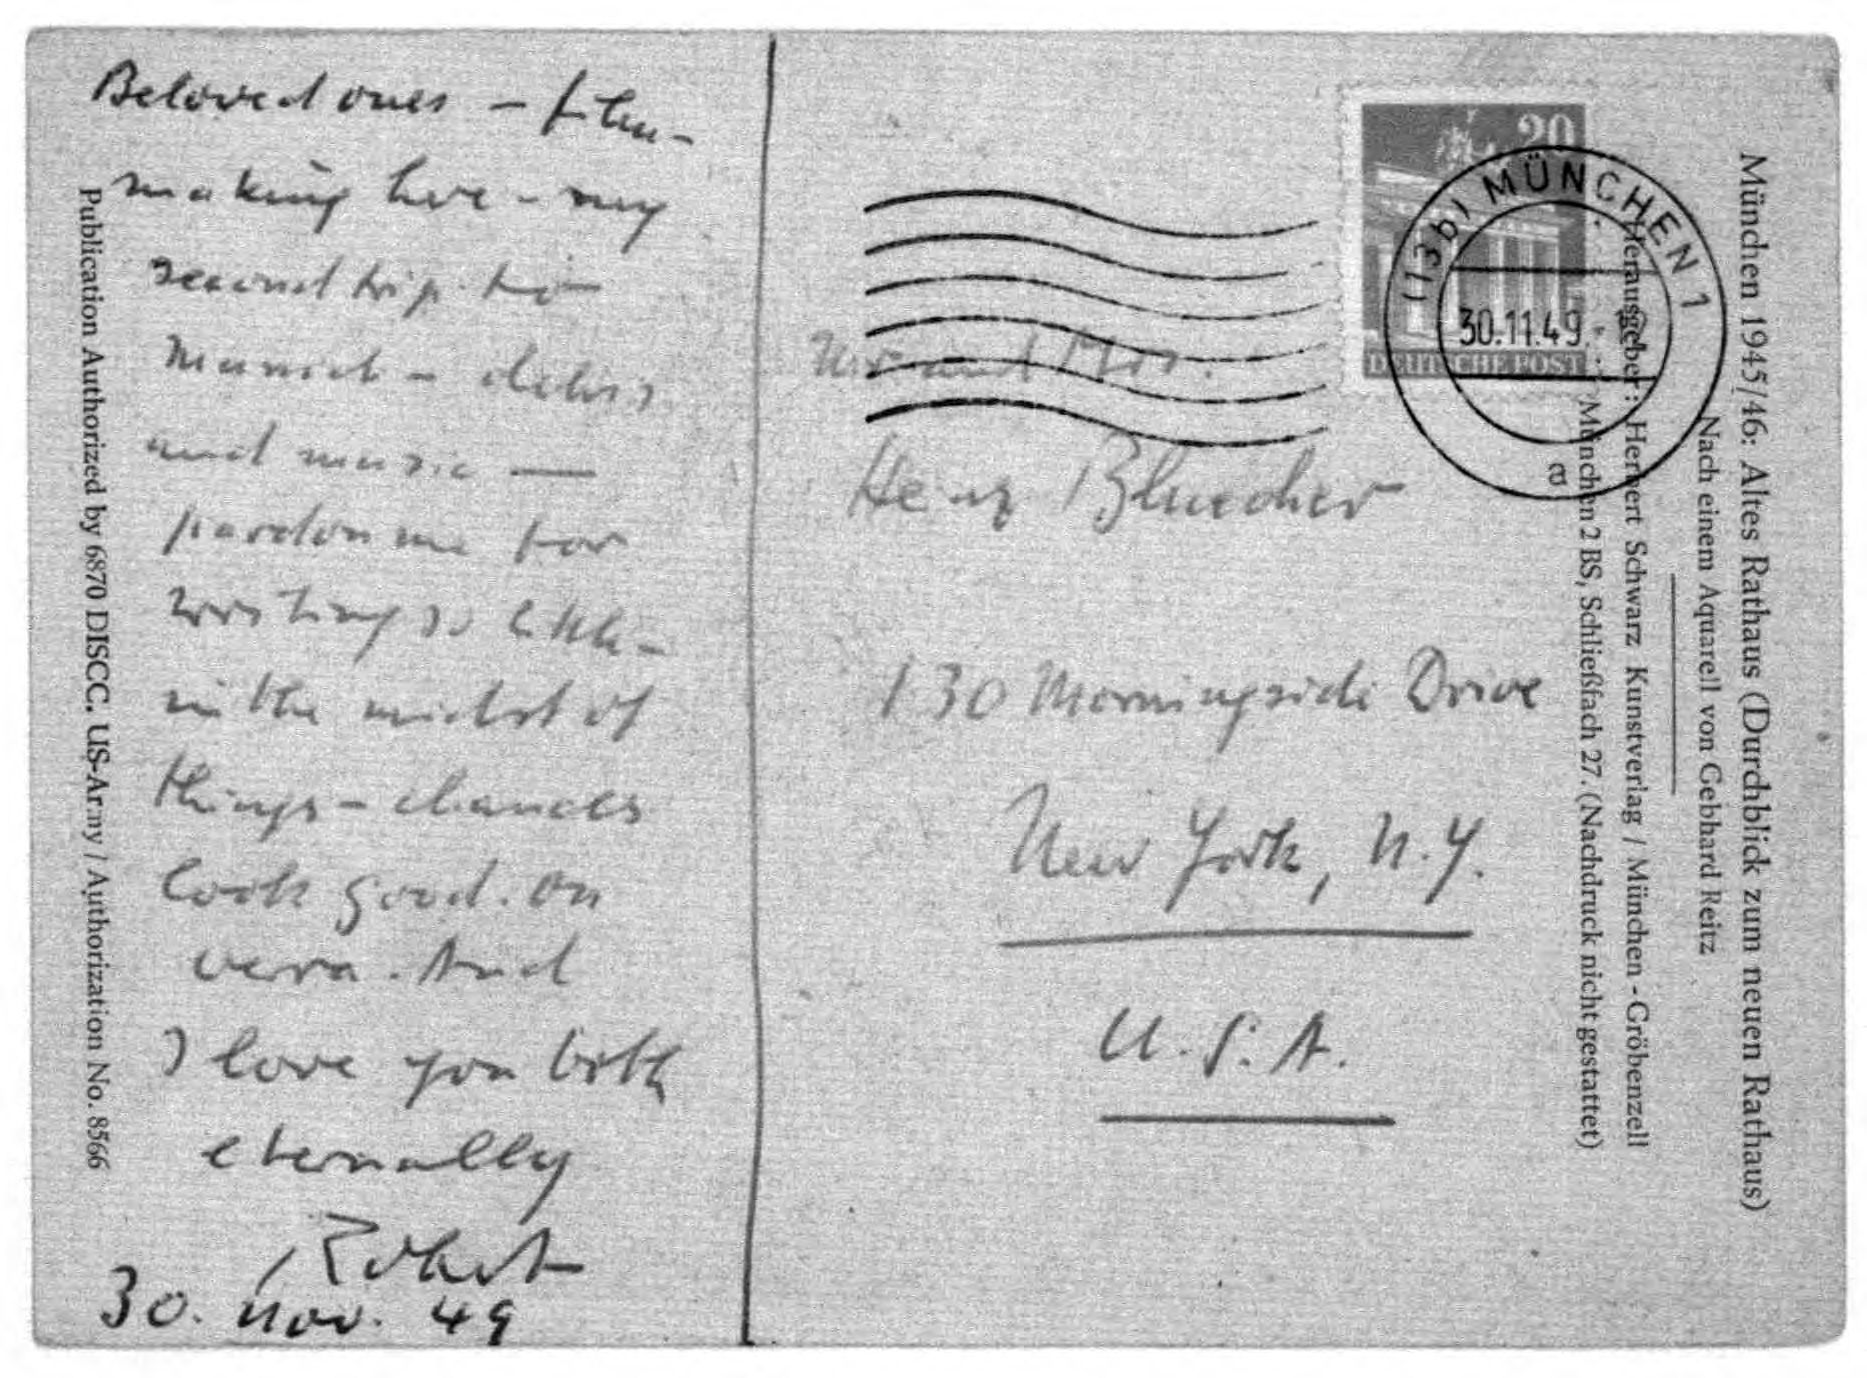 Beloved ones – film-
making here – my
second trip to
Munich – debris
and music —
pardon me for
writing so little –
in the midst of
things – chances
look good. on
vera. And
I love you both
eternally
Robert
30. Nov. 49
Publication Authorized by 6870 DISCC. US-Army / Authorization No. 8566
Mr. and Mrs.
Heinz Bluecher
130 Morningside Drive
New York, N.Y.
U.S.A.
20
DEUTSCHE POST
(13b) MÜNCHEN 1
30.11.49.
a
München 1945/46: Altes Rathaus (Durchblick zum neuen Rathaus)
Nach einem Aquarell von Gebhard Reitz
Herausgeber: Herbert Schwarz Kunstverlag / München-Gröbenzell
München 2 BS, Schließfach 27. (Nachdruck nicht gestattet)